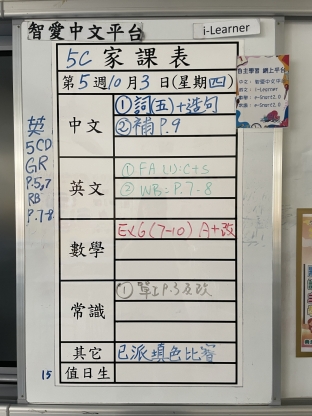 智愛中文平台
i-Learner
5C 家課表
第5週10月3日(星期四)
自主學習 網上平台
中文
①詞(五)+造句
②補 P.9
英
5CD
GR
P.5,7
RB
P.7-8
英文
①FA U1:C+S
②WB:P.7-8
數學
Ex6(7-10) A+改
常識
①單1P.3及改
其它
已派填色比賽
15
值日生